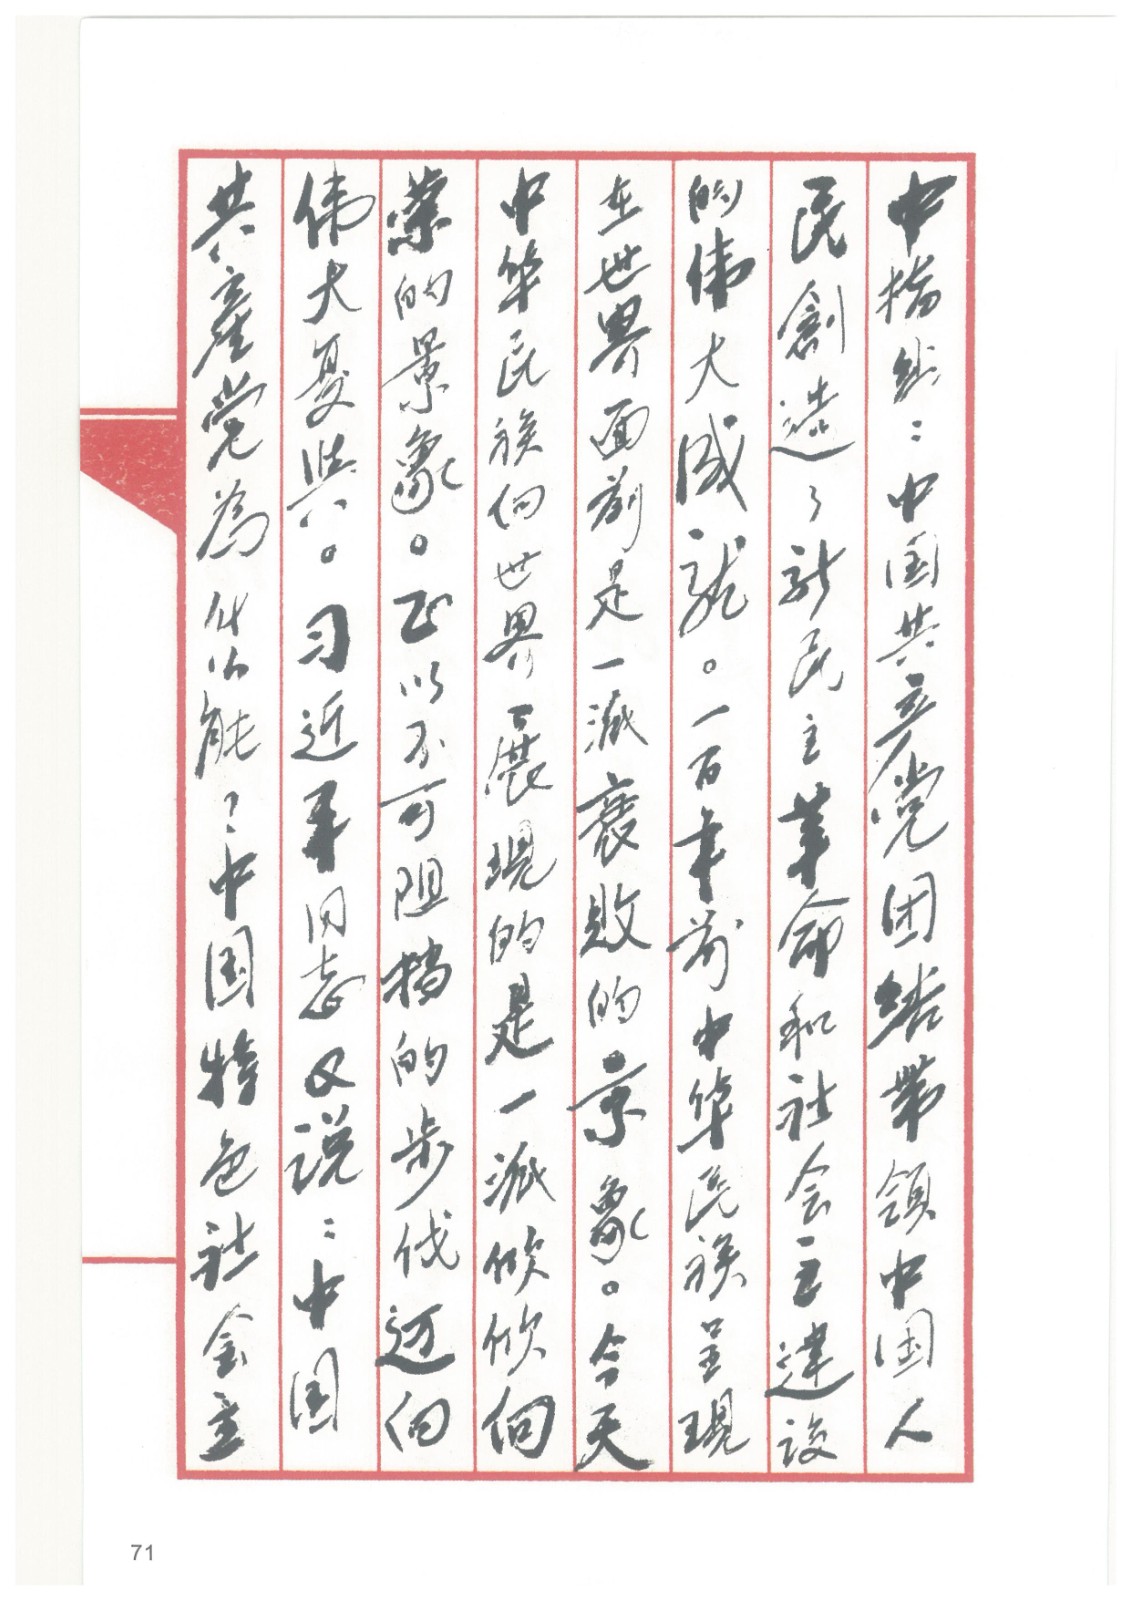 中指出：中国共产党团结带领中国人
民創造了新民主革命和社会主建设
的伟大成就。一百年前中华民族呈现
在世界面前是一派衰败的景象。今天
中华民族向世界展现的是一派欣欣向
荣的景象。正以不可阻挡的步伐迈向
伟大复兴。习近平同志又说：中国
共產党為什么能？中国特色社会主
71